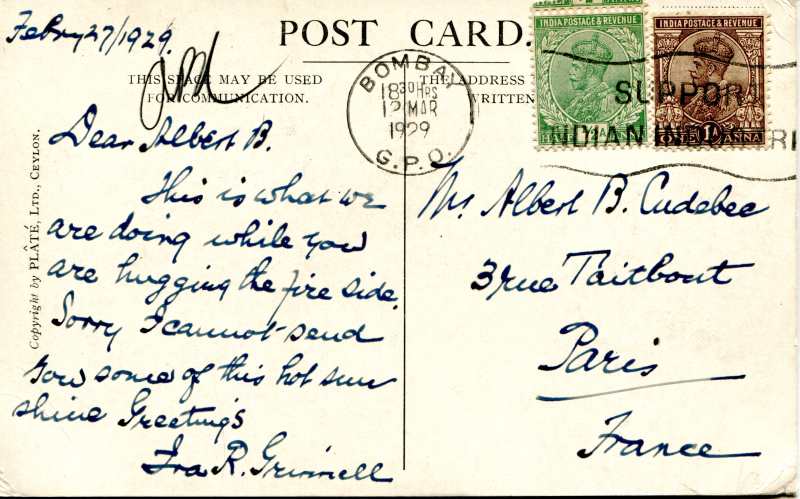 Febry 27/1929.
POST CARD.
THIS SPACE MAY BE USED
FOR COMMUNICATION.
THE ADDRESS
WRITTEN
INDIA POSTAGE & REVENUE
INDIA POSTAGE & REVENUE
BOMBAY
18 30 HRS
12 MAR
1929
G.P.O.
SUPPORT
INDIAN INDUSTRI
Copyright by PLÂTÉ, LTD., CEYLON.
Dear Albert B.
This is what we
are doing while you
are hugging the fire side.
Sorry I cannot send
you some of this hot sun
shine Greetings
Ira R. Grinnell
Mr Albert B. Cudebec
3 rue Taitbout
Paris
France